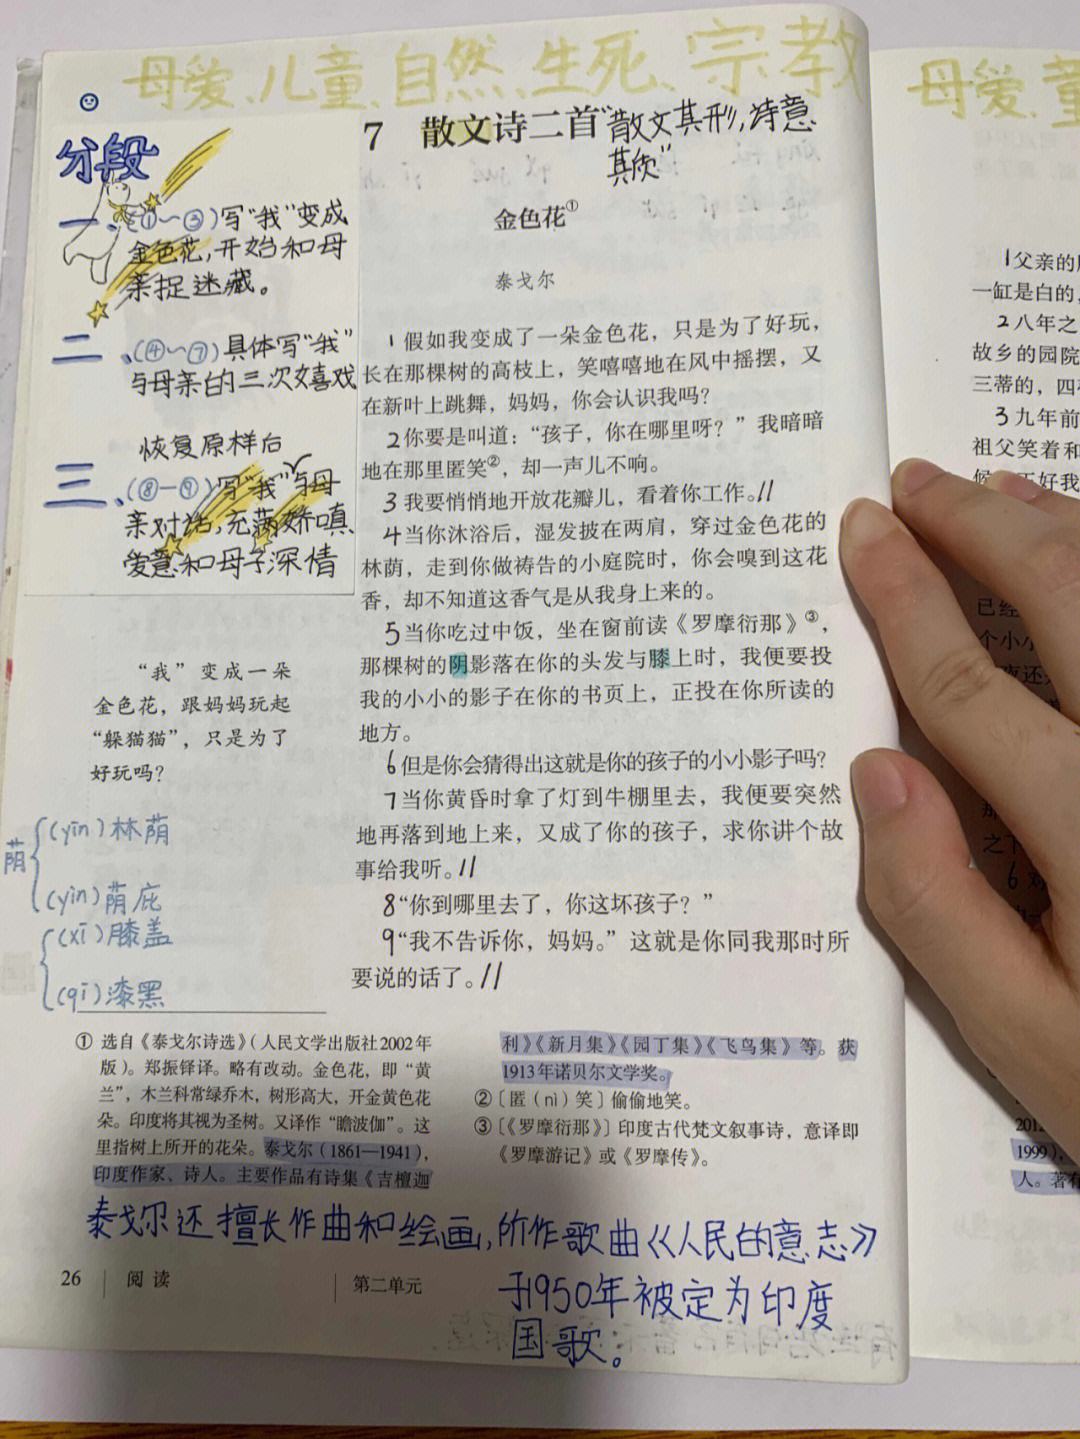 母爱、儿童、自然、生死、宗教
7 散文诗二首“散文其形，诗意
其质”
金色花①
泰戈尔
1假如我变成了一朵金色花，只是为了好玩，
长在那棵树的高枝上，笑嘻嘻地在风中摇摆，又
在新叶上跳舞，妈妈，你会认识我吗？
2你要是叫道：“孩子，你在哪里呀？”我暗暗
地在那里匿笑②，却一声儿不响。
3我要悄悄地开放花瓣儿，看着你工作。//
4当你沐浴后，湿发披在两肩，穿过金色花的
林荫，走到你做祷告的小庭院时，你会嗅到这花
香，却不知道这香气是从我身上来的。
5当你吃过中饭，坐在窗前读《罗摩衍那》③，
那棵树的阴影落在你的头发与膝上时，我便要投
我的小小的影子在你的书页上，正投在你所读的
地方。
6但是你会猜得出这就是你的孩子的小小影子吗？
7当你黄昏时拿了灯到牛棚里去，我便要突然
地再落到地上来，又成了你的孩子，求你讲个故
事给我听。//
8“你到哪里去了，你这坏孩子？”
9“我不告诉你，妈妈。”这就是你同我那时所
要说的话了。//
分段
一、(①～③)写“我”变成
金色花，开始和母
亲捉迷藏。
二、(④～⑦)具体写“我”
与母亲的三次嬉戏
恢复原样后
三、(⑧—⑨)写“我”与母
亲对话，充满娇嗔
爱意和母子深情
“我”变成一朵
金色花，跟妈妈玩起
“躲猫猫”，只是为了
好玩吗？
荫
(yīn)林荫
(yìn)荫庇
(xī)膝盖
(qī)漆黑
① 选自《泰戈尔诗选》（人民文学出版社2002年
版）。郑振铎译。略有改动。金色花，即“黄
兰”，木兰科常绿乔木，树形高大，开金黄色花
朵。印度将其视为圣树。又译作“瞻波伽”。这
里指树上所开的花朵。泰戈尔（1861—1941），
印度作家、诗人。主要作品有诗集《吉檀迦
利》《新月集》《园丁集》《飞鸟集》等。获
1913年诺贝尔文学奖。
②〔匿（nì）笑〕偷偷地笑。
③〔《罗摩衍那》〕印度古代梵文叙事诗，意译即
《罗摩游记》或《罗摩传》。
泰戈尔还擅长作曲和绘画，所作歌曲《人民的意志》
于1950年被定为印度
国歌。
26 阅读 第二单元
母爱、童
1父亲的
一缸是白的，
2八年之
故乡的园院
三蒂的，四
3九年前
祖父笑着和
已经
个小小
之下
6对
2012
1999），
人。著有